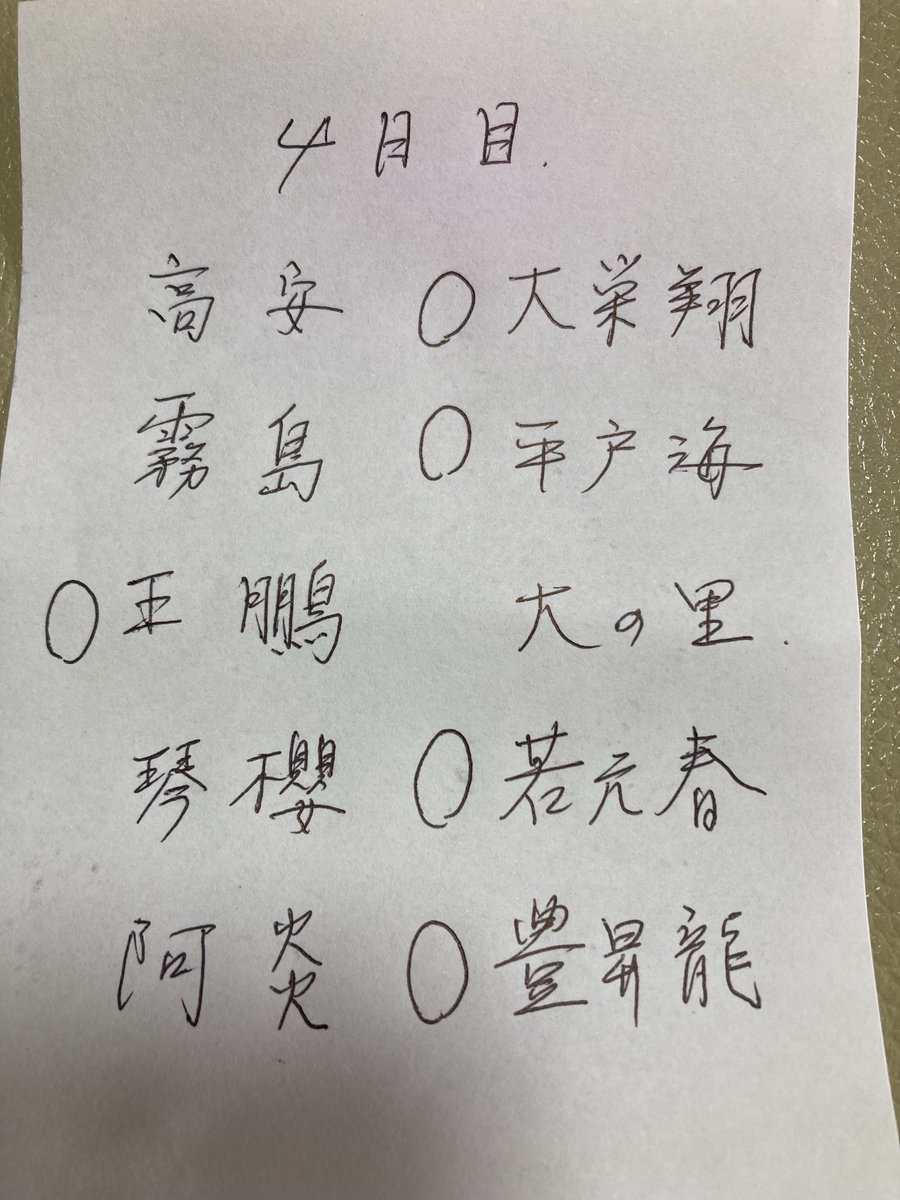 4日目.
高安 〇大栄翔
霧島 〇平戸海
〇王鵬 大の里.
琴櫻 〇若元春
阿炎 〇豊昇龍